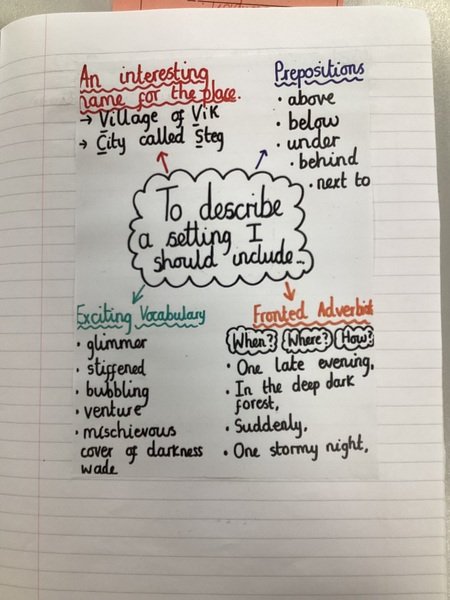 An interesting
name for the place.
→ Village of Vik
→ City called Steg
Prepositions
• above
• below
• under
• behind
• next to
To describe
a setting I
should include...
Exciting Vocabulary
• glimmer
• stiffened
• bubbling
• venture
• mischievous
cover of darkness
wade
Fronted Adverbial
When? Where? How?
• One late evening,
• In the deep dark
forest,
• Suddenly,
• One stormy night,